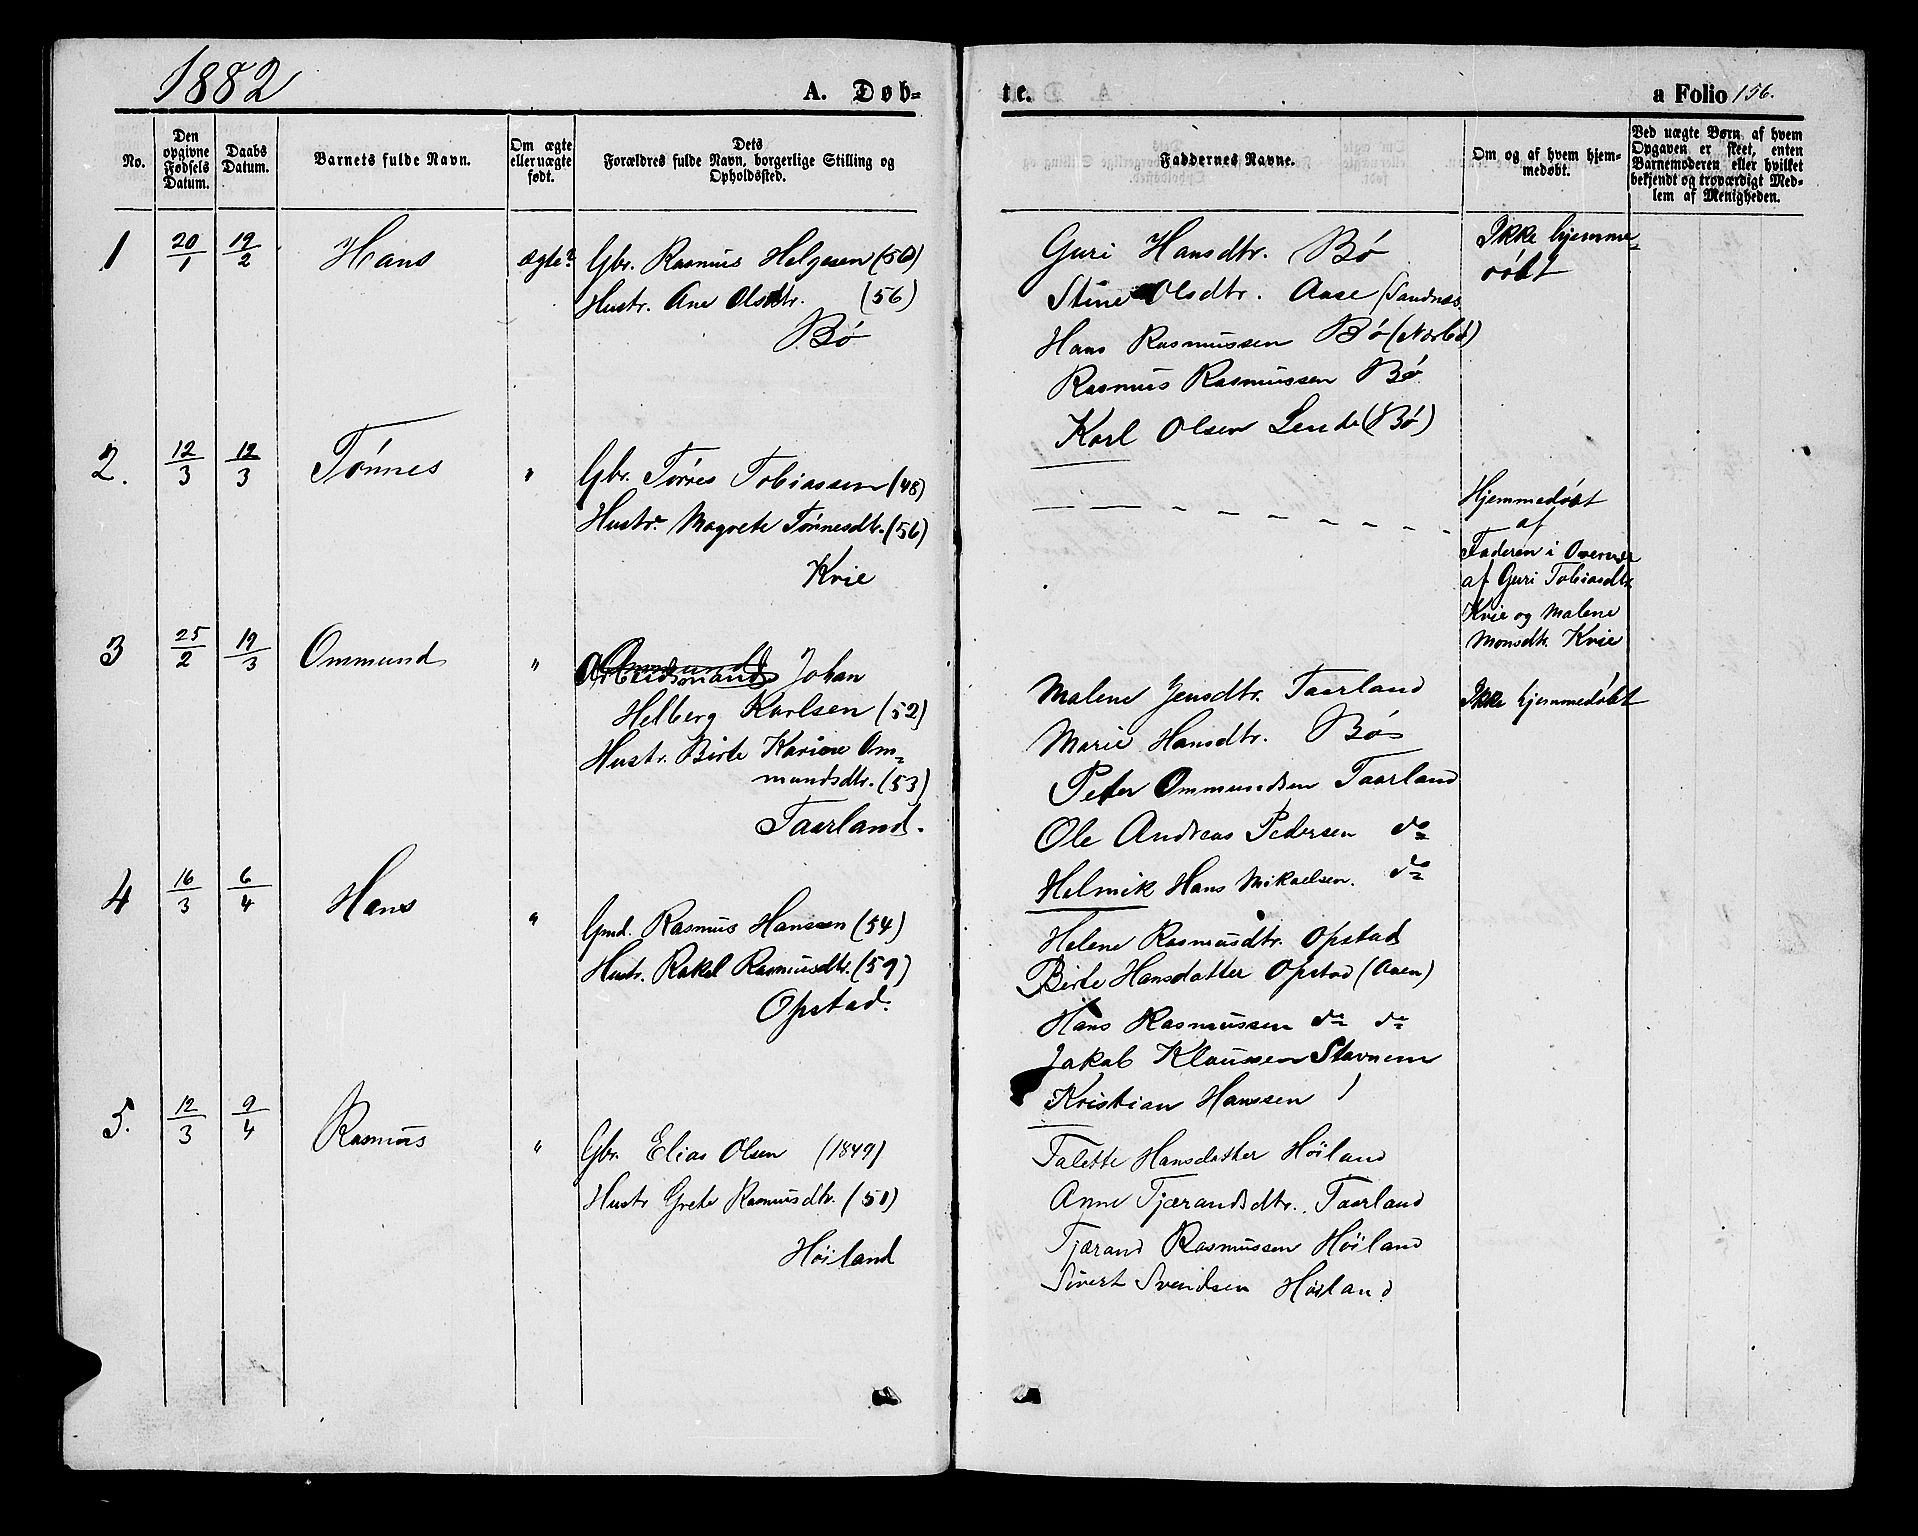 1882
A. Døb=
te.
a Folio 156.
No.
Den opgivne Fødsels Datum.
Daabs Datum.
Barnets fulde Navn.
Om ægte eller uægte født.
Dets Forældres fulde Navn, borgerlige Stilling og Opholdssted.
Faddernes Navne.
Om og af hvem hjem-medøbt.
Ved uægte Børn, af hvem Opgaven er skeet, enten Barnemoderen eller hvilket bekjendt og troværdigt Med-lem af Menigheden.
1 20/1 19/2 Hans ægte
Gbr. Rasmus Helgesen (50)
Hustr. Ane Olsdtr. (56)
Bø
Guri Hansdtr. Bø
Stine Olsdtr. Aase (Sandnes
Hans Rasmussen Bø (Norbø)
Rasmus Rasmussen Bø
Karl Olsen Lende (Bø)
Ikke hjemme
døbt
2. 12/3 12/3 Tønnes "
Gbr. Tørres Tobiassen (48)
Hustr. Magrete Tønnesdtr. (56)
Kvie
Hjemmedøbt
af
Faderen i Overvær
af Guri Tobiasdtr
Kvie og Malene
Monsdtr. Kvie
3 25/2 19/3 Ommund "
Arbeidsmand Johan
Helberg Karlsen (52)
Hustr. Birte Karine Om=
mundsdtr. (53)
Taarland.
Malene Jensdtr. Taarland
Marie Hansdtr. Bø
Peter Ommundsen Taarland
Ole Andreas Pedersen do
Helmik Hans Mikaelsen. do
Ikke hjemmedøbt
4 16/3 6/4 Hans "
Gmd. Rasmus Hanssen (54)
Hustr. Rakel Rasmusdtr. (59)
Opstad.
Helene Rasmusdtr. Opstad
Birte Hansdatter Opstad (Aaen)
Hans Rasmussen do do
Jakob Klaussen Stavnem
Kristian Hanssen !
5. 12/3 9/4 Rasmus "
Gbr. Elias Olsen (1849)
Hustr Grete Rasmusdtr. (51)
Høiland
Talette Hansdatter Høiland
Anne Tjærandsdtr. Taarland
Tjærand Rasmussen Høiland
Sivert Svendsen Høiland